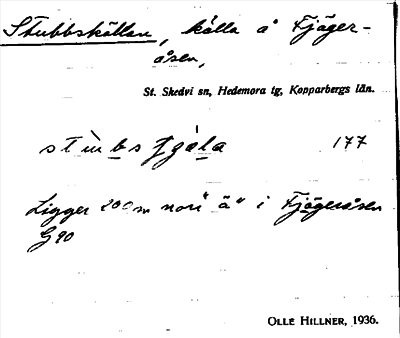 Stubbskällan, källa å Fjäger-
åsen,
St. Skedvi sn, Hedemora tg, Kopparbergs län.
177
Ligger 200 m norr "ä" i Fjägeråsen
G 90
OLLE HILLNER, 1936.